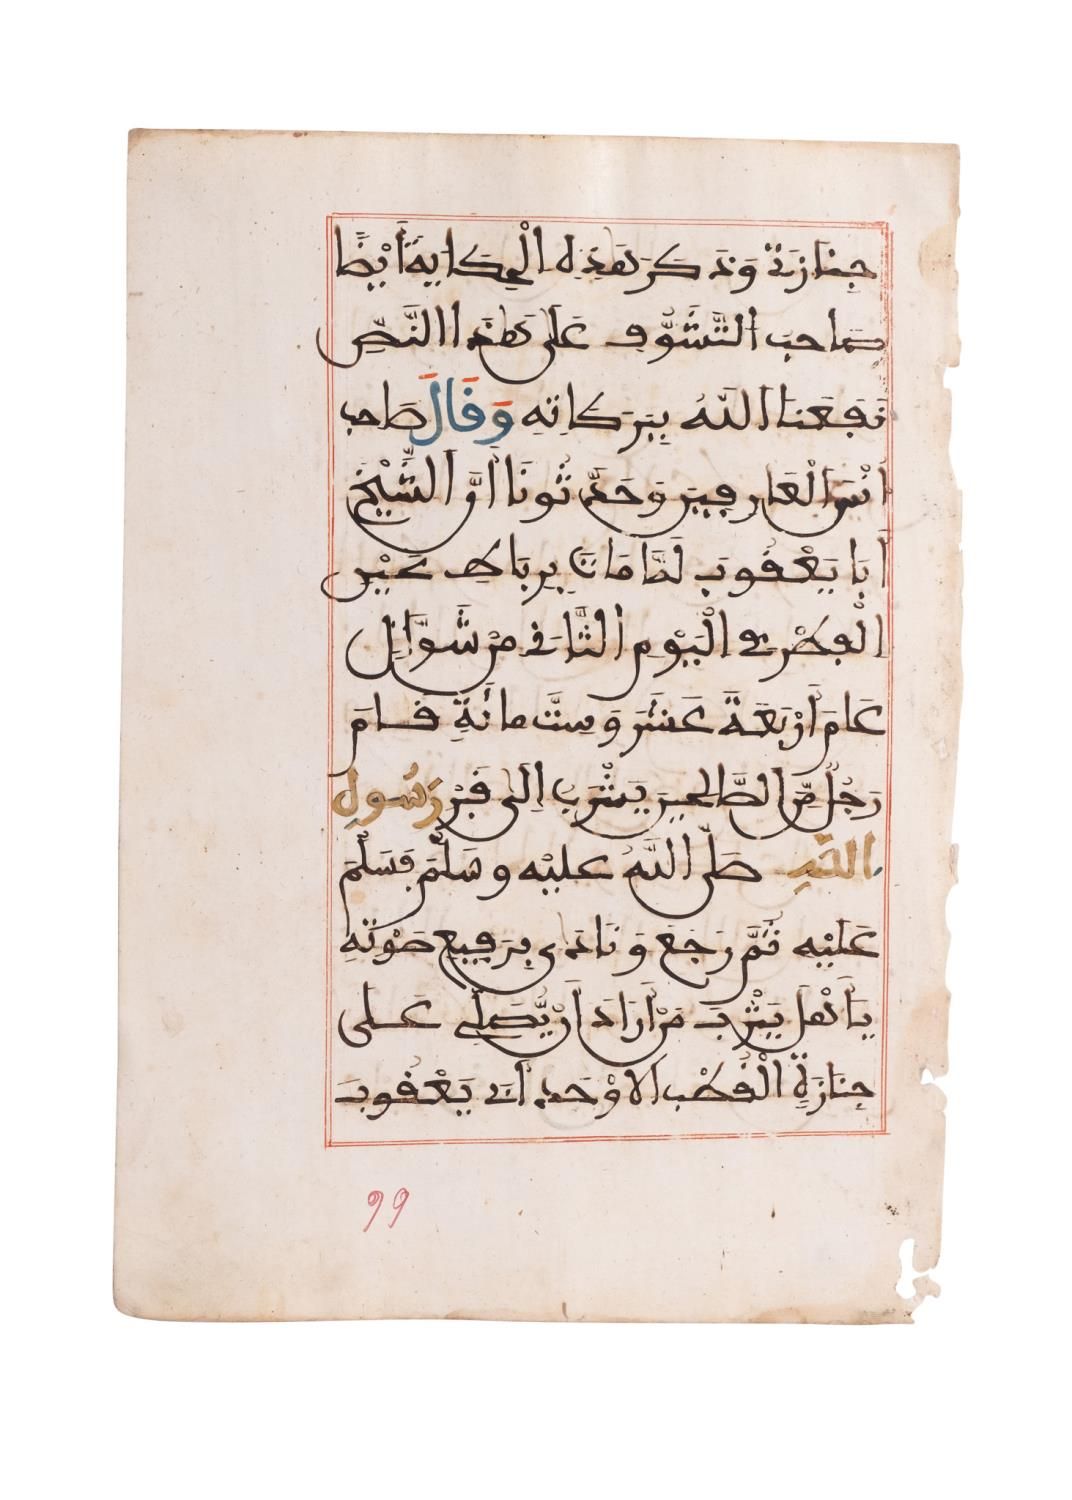 جِنَازَتَهُ وَذَكَرَ هَذِهِ الْحِكَايَةَ أَيْضًا
صَاحِبُ التَّشَوُّفِ عَلَى هَذَا النَّصِّ
نَفَعَنَا اللَّهُ بِبَرَكَاتِهِ وَقَالَ صَاحِبُ
أُنْسِ الْعَارِفِينَ وَحَدَّثُونَا أَنَّ الشَّيْخَ
أَبَا يَعْقُوبَ لَمَّا مَاتَ بِرِبَاطِ عَيْنِ
الْفِطْرِ فِي الْيَوْمِ الثَّانِي مِنْ شَوَّالٍ
عَامَ أَرْبَعَةَ عَشَرَ وَسِتَّ مِائَةٍ قَامَ
رَجُلٌ مِّنَ الصَّالِحِينَ بِيَثْرِبَ إِلَى قَبْرِ رَسُولِ
اللَّهِ صَلَّى اللَّهُ عَلَيْهِ وَسَلَّمَ فَسَلَّمَ
عَلَيْهِ ثُمَّ رَجَعَ وَنَادَى بِرَفِيعِ صَوْتِهِ
يَا أَهْلَ يَثْرِبَ مَنْ أَرَادَ أَنْ يُّصَلِّيَ عَلَى
جِنَازَةِ الْقُطْبِ الأَوْحَدِ أَبِي يَعْقُوبَ
99